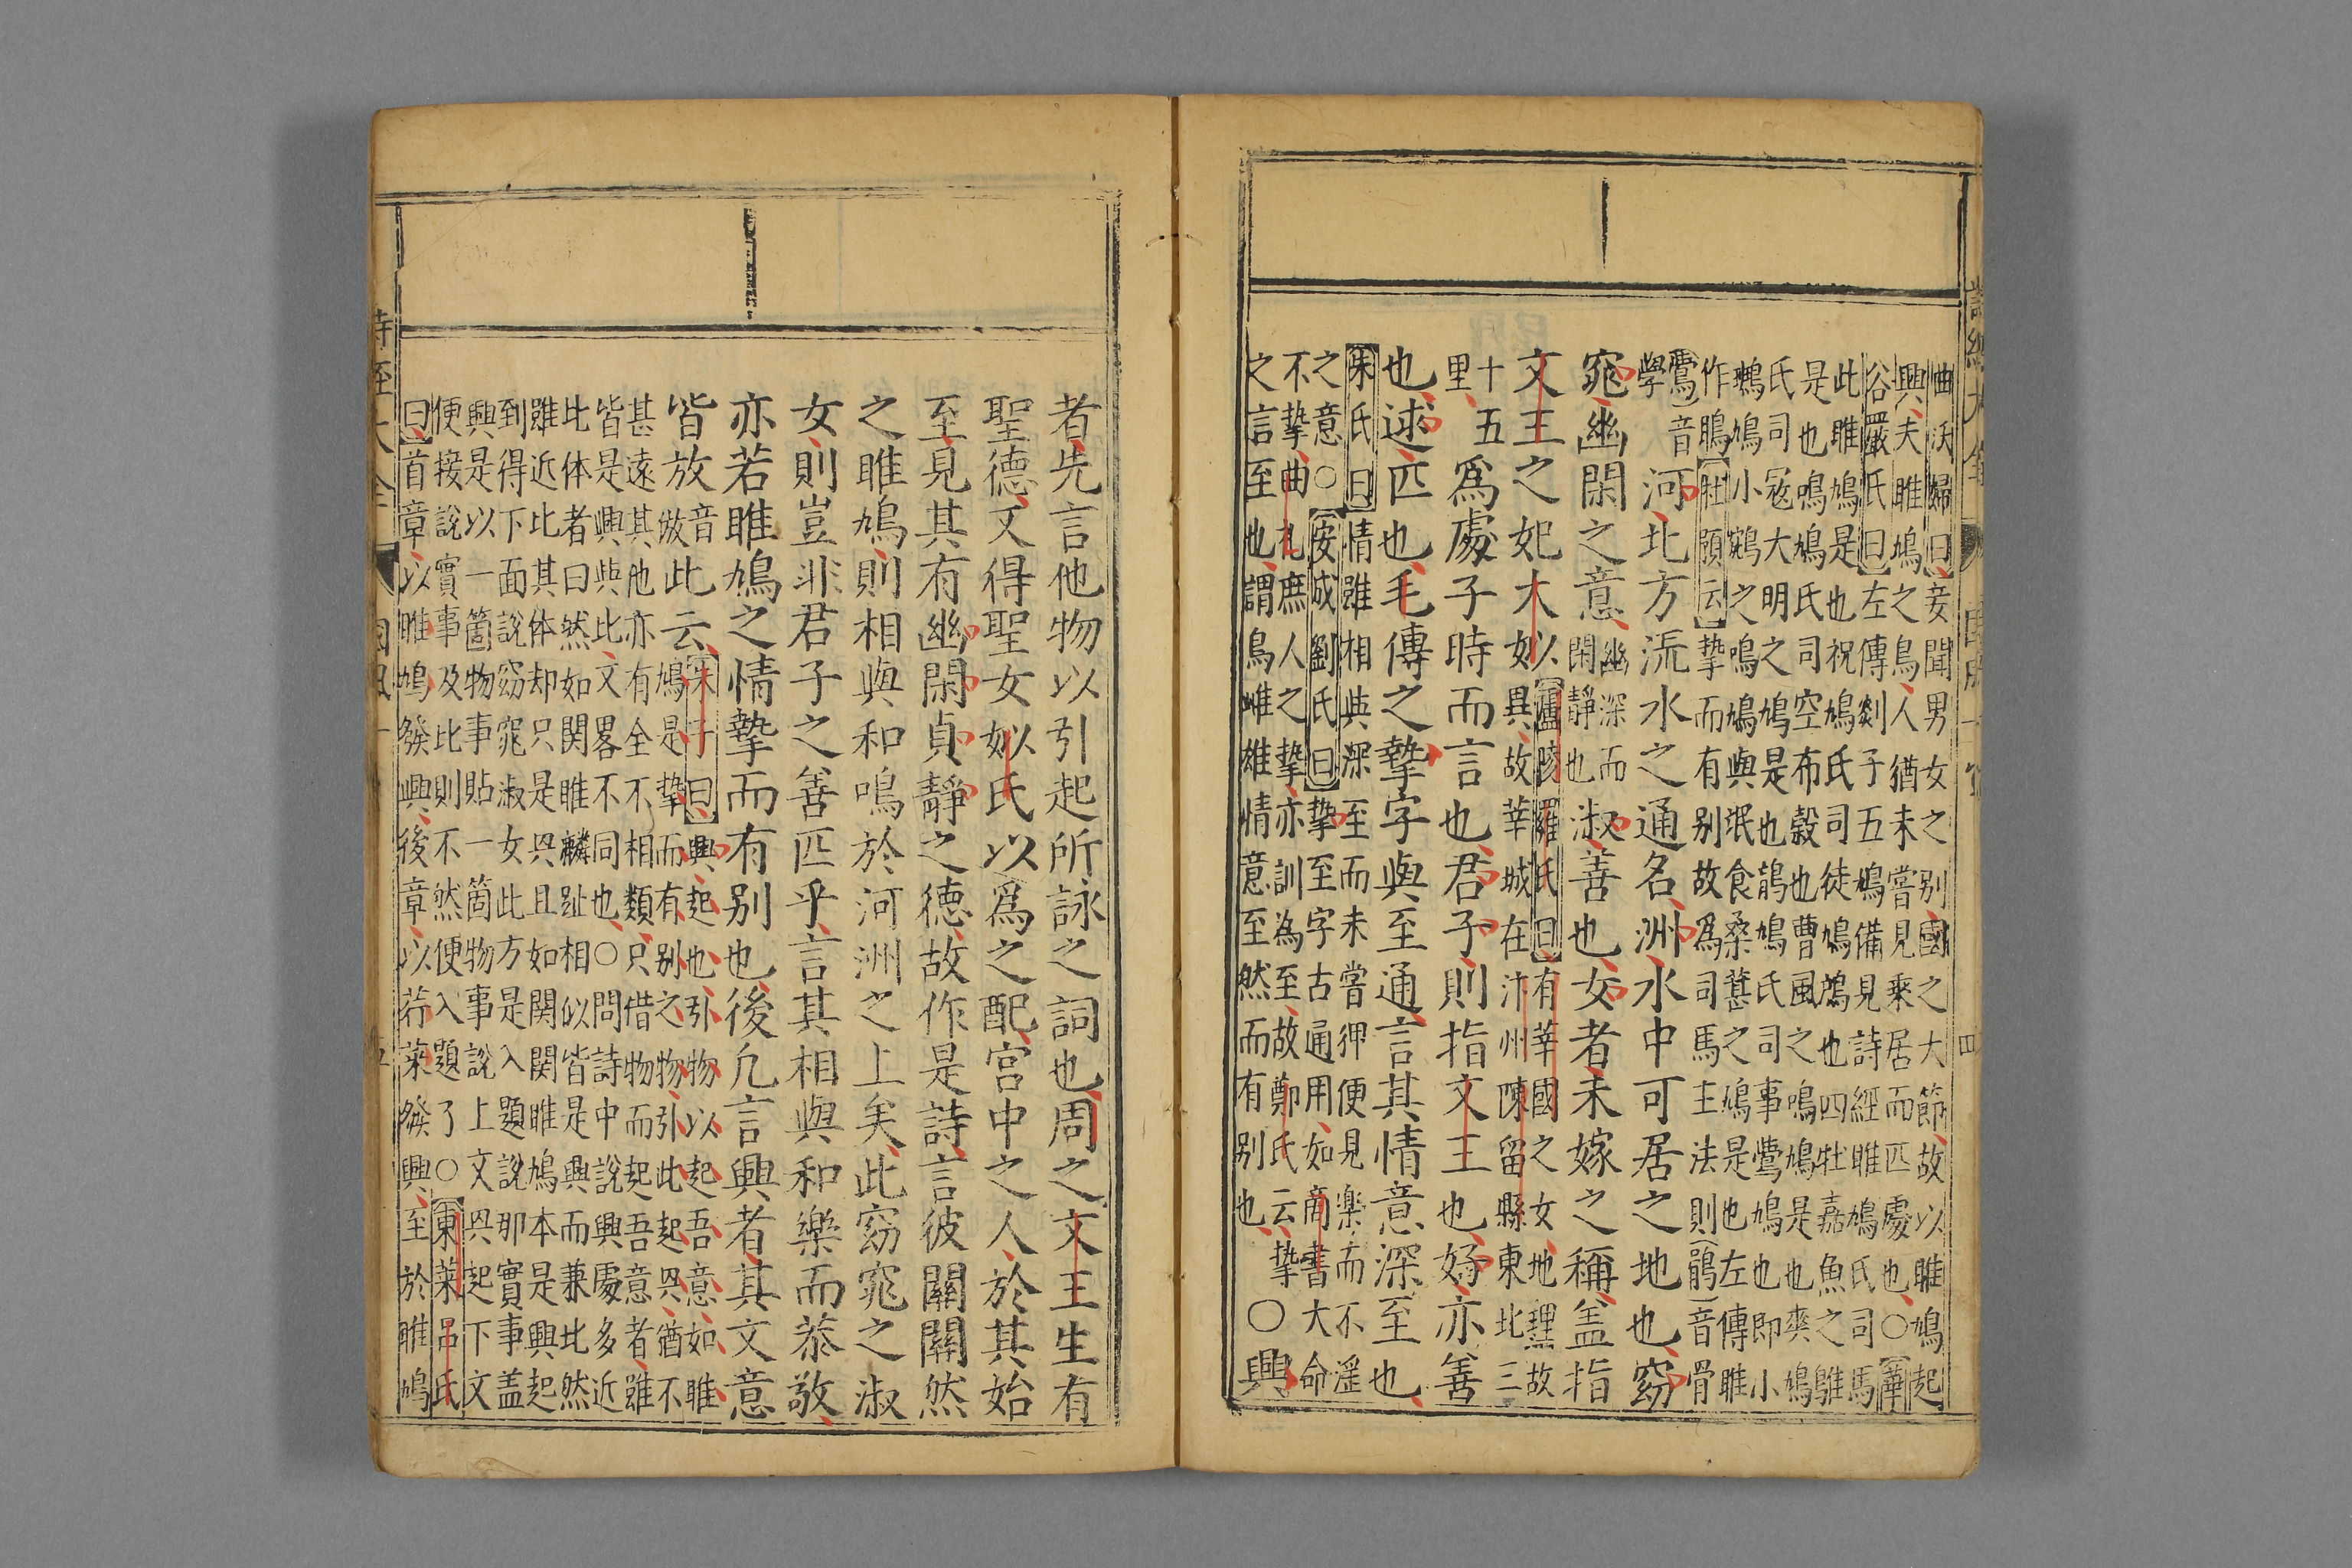 曲沃婦曰妾聞男女之别國之大節故以雎鳩起
興夫雎鳩之鳥人猶未嘗見乗居而匹處也○華
谷嚴氏曰左傳郯子五鳩備見詩經雎鳩氏司馬
此雎鳩是也祝鳩氏司徒鳩鷦也四牡嘉魚之鵻
是也鳴鳩氏司空布穀也曹風之鳴鳩是也爽鳩
氏司冦大明之鳩是也鶻鳩氏司事鶯鳩也即小
鵝鳩小鵷之鳴鳩與氓食桑葚之鳩是也左傳雎
作鵙杜預云摯而有别故爲司馬主法則鶻音骨
鷽音
學
河北方流水之通名洲水中可居之地也窈
窕幽閑之意
幽深而
閑靜也
淑善也女者未嫁之稱盖指
文王之妃大姒
盧陵羅氏曰有莘國之女地理故
異故莘城在汴州陳留縣東北三
十五
里
爲處子時而言也君子則指文王也好亦善
也逑匹也毛傳之摯字與至通言其情意深至也
朱氏曰情雖相與深至而未嘗狎便見楽而不淫
之意○安成劉氏曰摯至字古通用如商書大命
不摯曲礼庶人之摯亦訓為至故鄭氏云摯
之言至也謂鳥雌雄情意至然而有别也
○興
者先言他物以引起所詠之詞也周之文王生有
聖德又得聖女姒氏以爲之配宮中之人於其始
至見其有幽閑貞靜之德故作是詩言彼關關然
之雎鳩則相與和鳴於河洲之上矣此窈窕之淑
女則豈非君子之善匹乎言其相與和樂而恭敬
亦若雎鳩之情摯而有别也後凡言興者其文意
皆放
音
倣
此云
朱子曰興起也引物以起吾意如雎
鳩是摯而有别之物引此起㒷猶不
甚遠其他亦有全不相類只借物而起吾意者雖
皆是興與此文畧不同也○問詩中說興處多近
比体者曰然如関雎麟趾相似皆是興而兼比然
雖近比其体却只是㒷且如関関雎鳩本是興起
到得下面說窈窕淑女此方是入題說那實事盖
興是以一箇物事貼一箇物事說上文㒷起下文
便接說實事及比則不然便入題了○東萊呂氏
曰首章以雎鳩發興後章以荇菜發興至於雎鳩